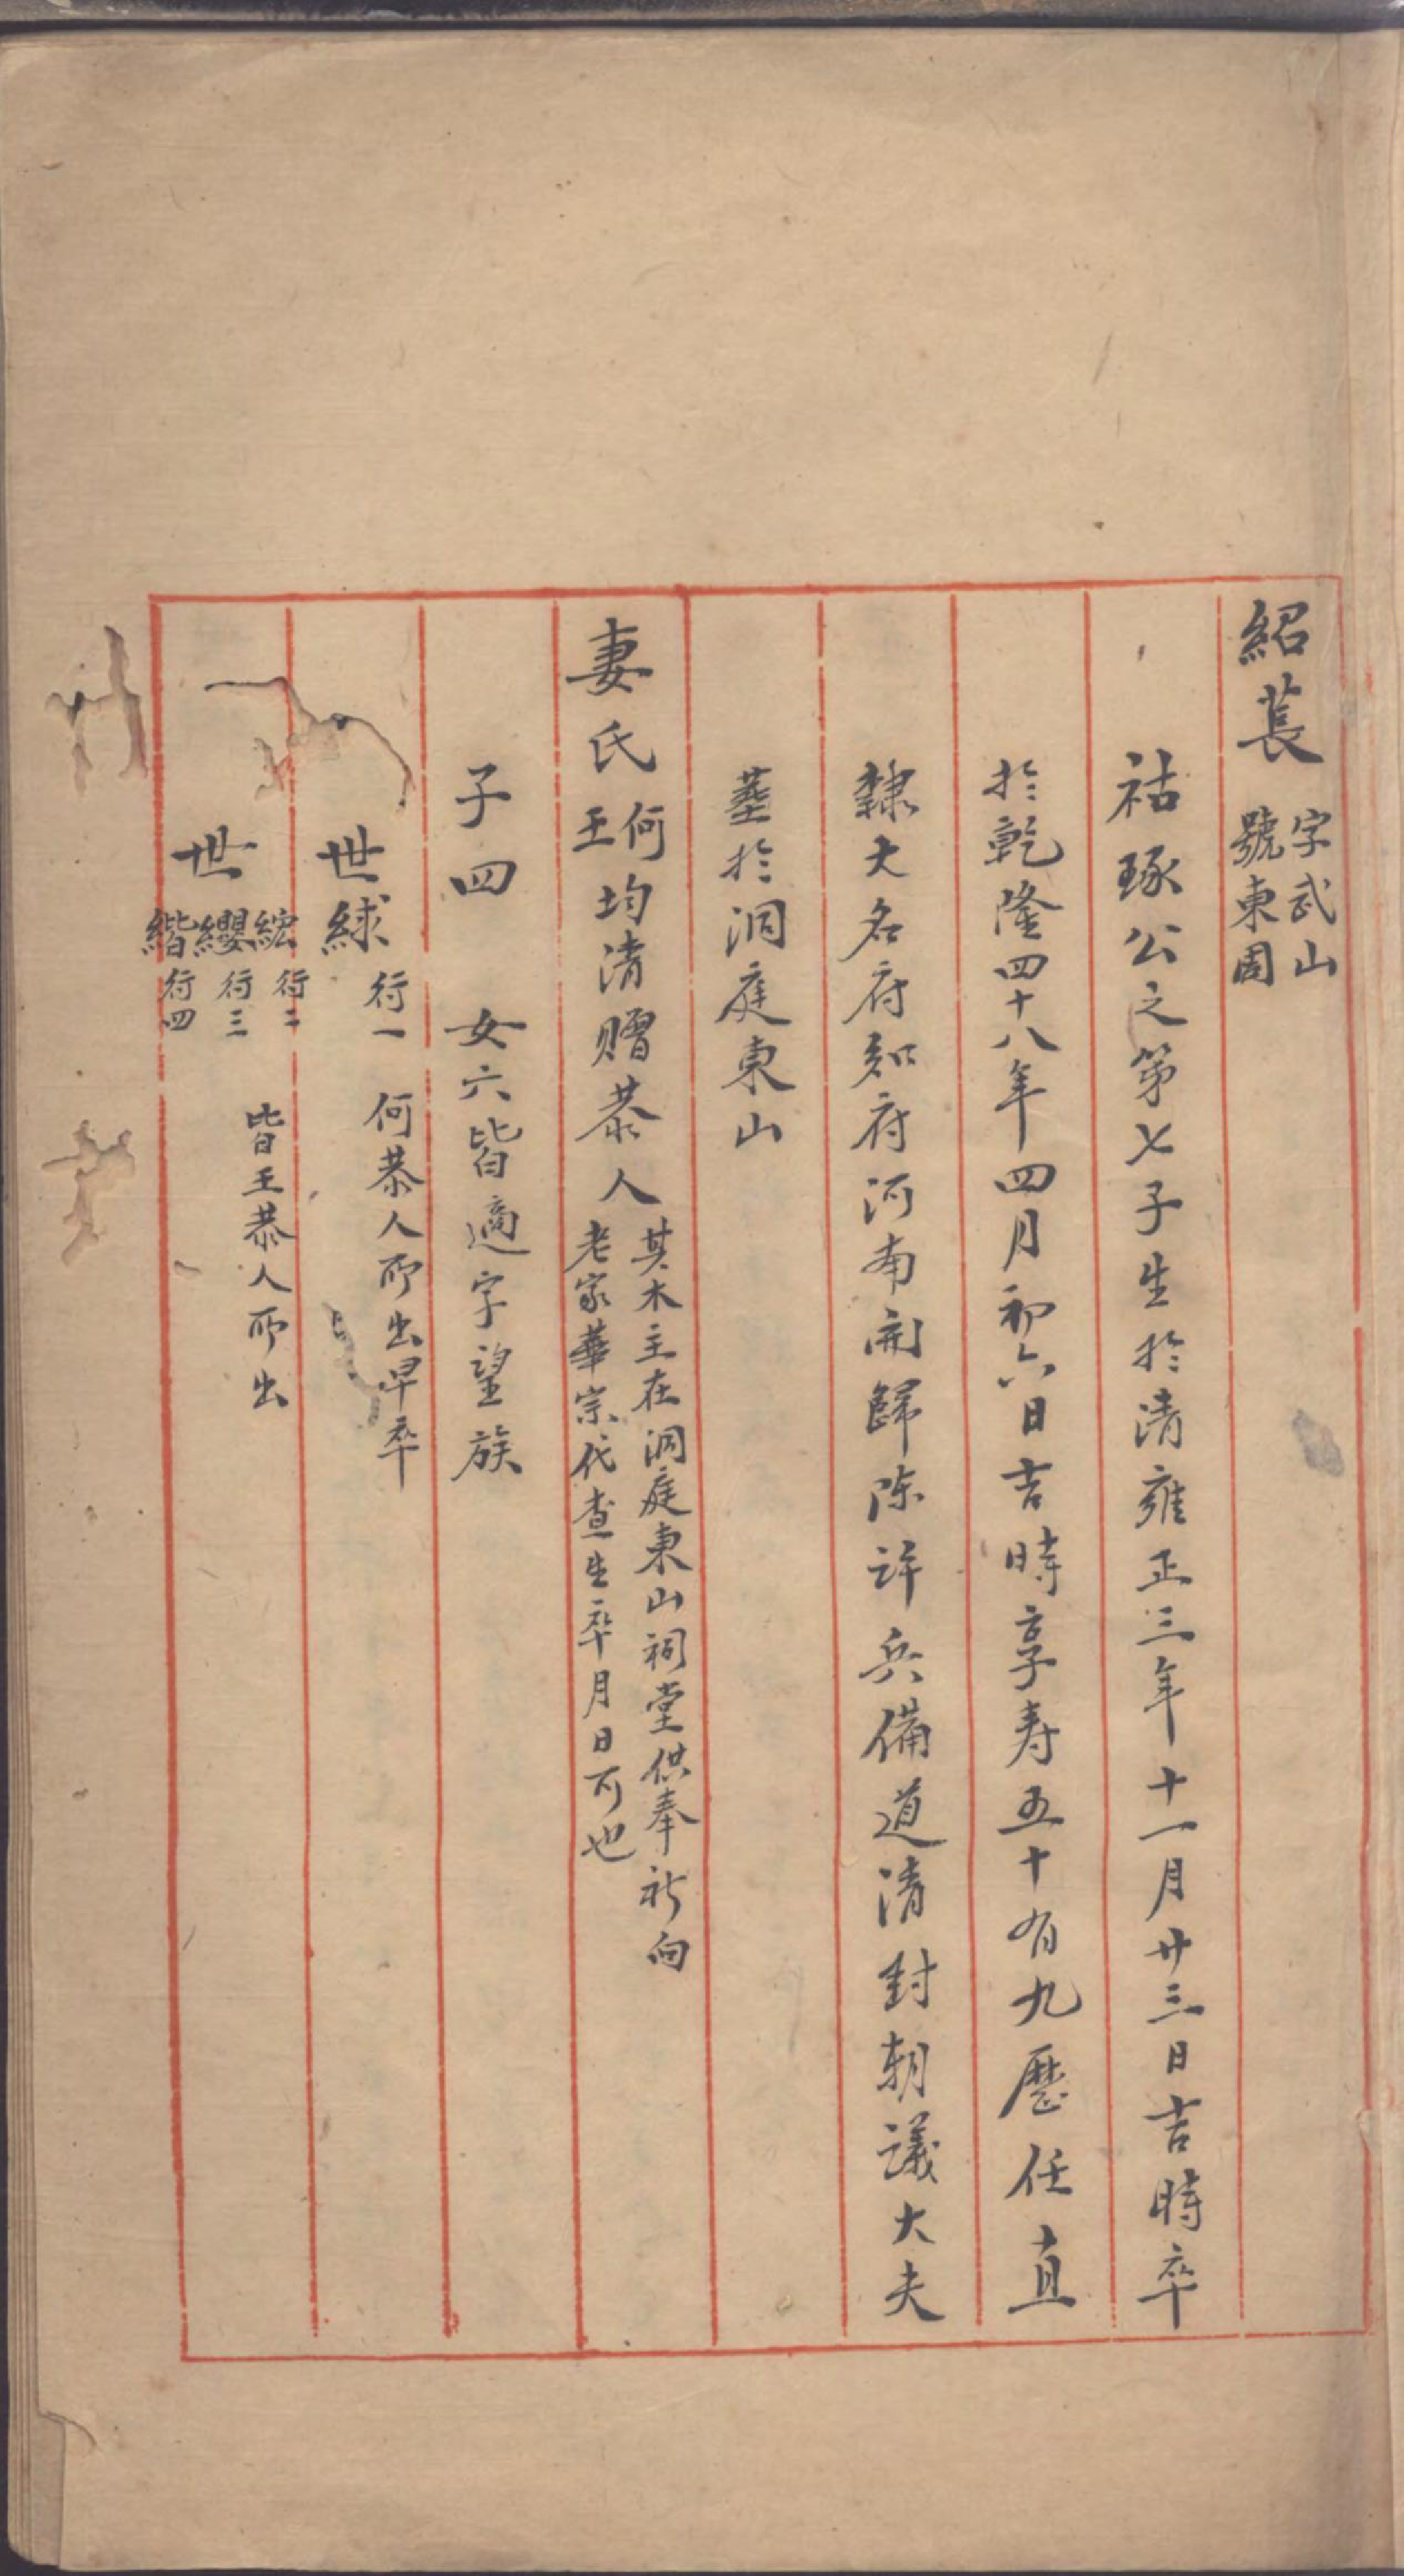 紹萇 字武山 號東園
祜琢公之第七子生於清雍正三年十一月廿三日吉時卒
於乾隆四十八年四月初六日吉時享寿五十有九歷任直
隸大名府知府河南開歸陳許兵備道清封朝議大夫
葬於洞庭東山
妻氏 何 王 均清贈恭人 其木主在洞庭東山祠堂供奉祈向
老家華宗代查生卒月日可也
子四 女六皆適字望族
世絿 行一 何恭人所出早卒
世 綋 行二 纓 行三 緒 行四 皆王恭人所出